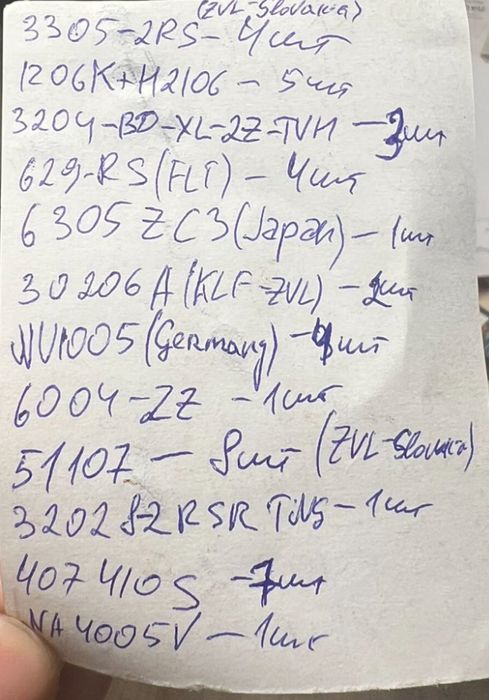 (ZVL-Slovakia)
3305-2RS - 4шт
1206K+H2106 - 5шт
3204-BD-XL-2Z-TVH - 3шт
629-RS (FLT) - 4шт
6305 ZC3 (Japan) - 1шт
30206A (KLF-ZVL) - 2шт
NU1005 (Germany) - 4шт
6004-2Z - 1шт
51107 - 8шт (ZVL-Slovakia)
3202 B-2RSR TNG - 1шт
407410S - 7шт
NA4005V - 1шт